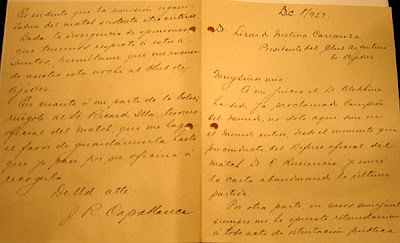 Dc. /927.
Dr. Lizardo Molina Carranza
Presidente del Club Argentino
de Ajedrez
Muy Señor mío:
A mi juicio el Dr. Alekhine
ha sido ya proclamado Campeón
del mundo, no solo aquí, sino en
el mundo entero, desde el momento que
por conducto del Referee oficial del
match Dr. C Querencio envié
la carta abandonando la última
partida.
Por otra parte, en casos semejantes
siempre me he opuesto rotundamente
á todo acto de ostentación pública
Es evidente que la comisión organi-
zadora del match sustenta otro criterio.
Dada la divergencia de opiniones
que tenemos respecto á estos a-
suntos, permítame que me excuse
de asistir esta noche al Club de
Ajedrez
En cuanto á mi parte de la bolsa,
ruégole al Sr Ricardo Illa, tesorero
oficial del match, que me haga
el favor de guardármela hasta
que yo pase por su oficina á
recogerla
De Ud atte
J. R. Capablanca